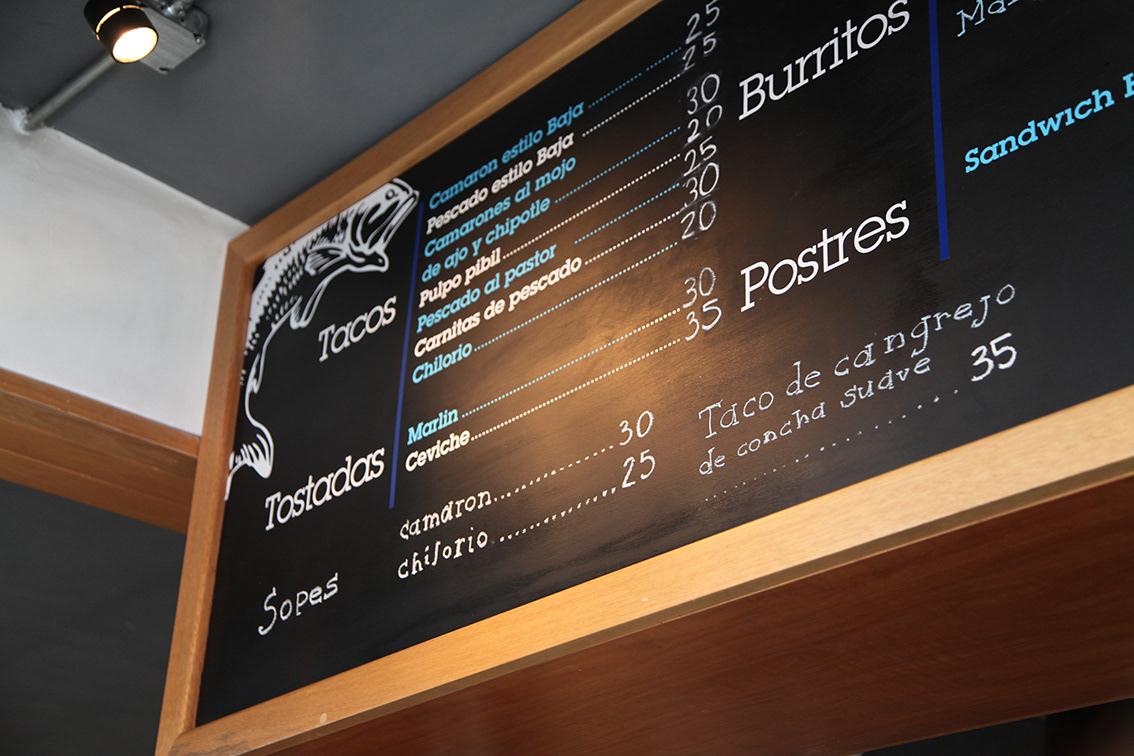 Tacos
Camaron estilo Baja 25
Pescado estilo Baja 25
Camarones al mojo
de ajo y chipotle 30
Pulpo pibil 20
Pescado al pastor 25
Carnitas de pescado 30
Chilorio 20
Tostadas
Marlin 30
Ceviche 35
Sopes
camaron 30
chilorio 25
Burritos
Postres
Taco de cangrejo
de concha suave
35
Sandwich